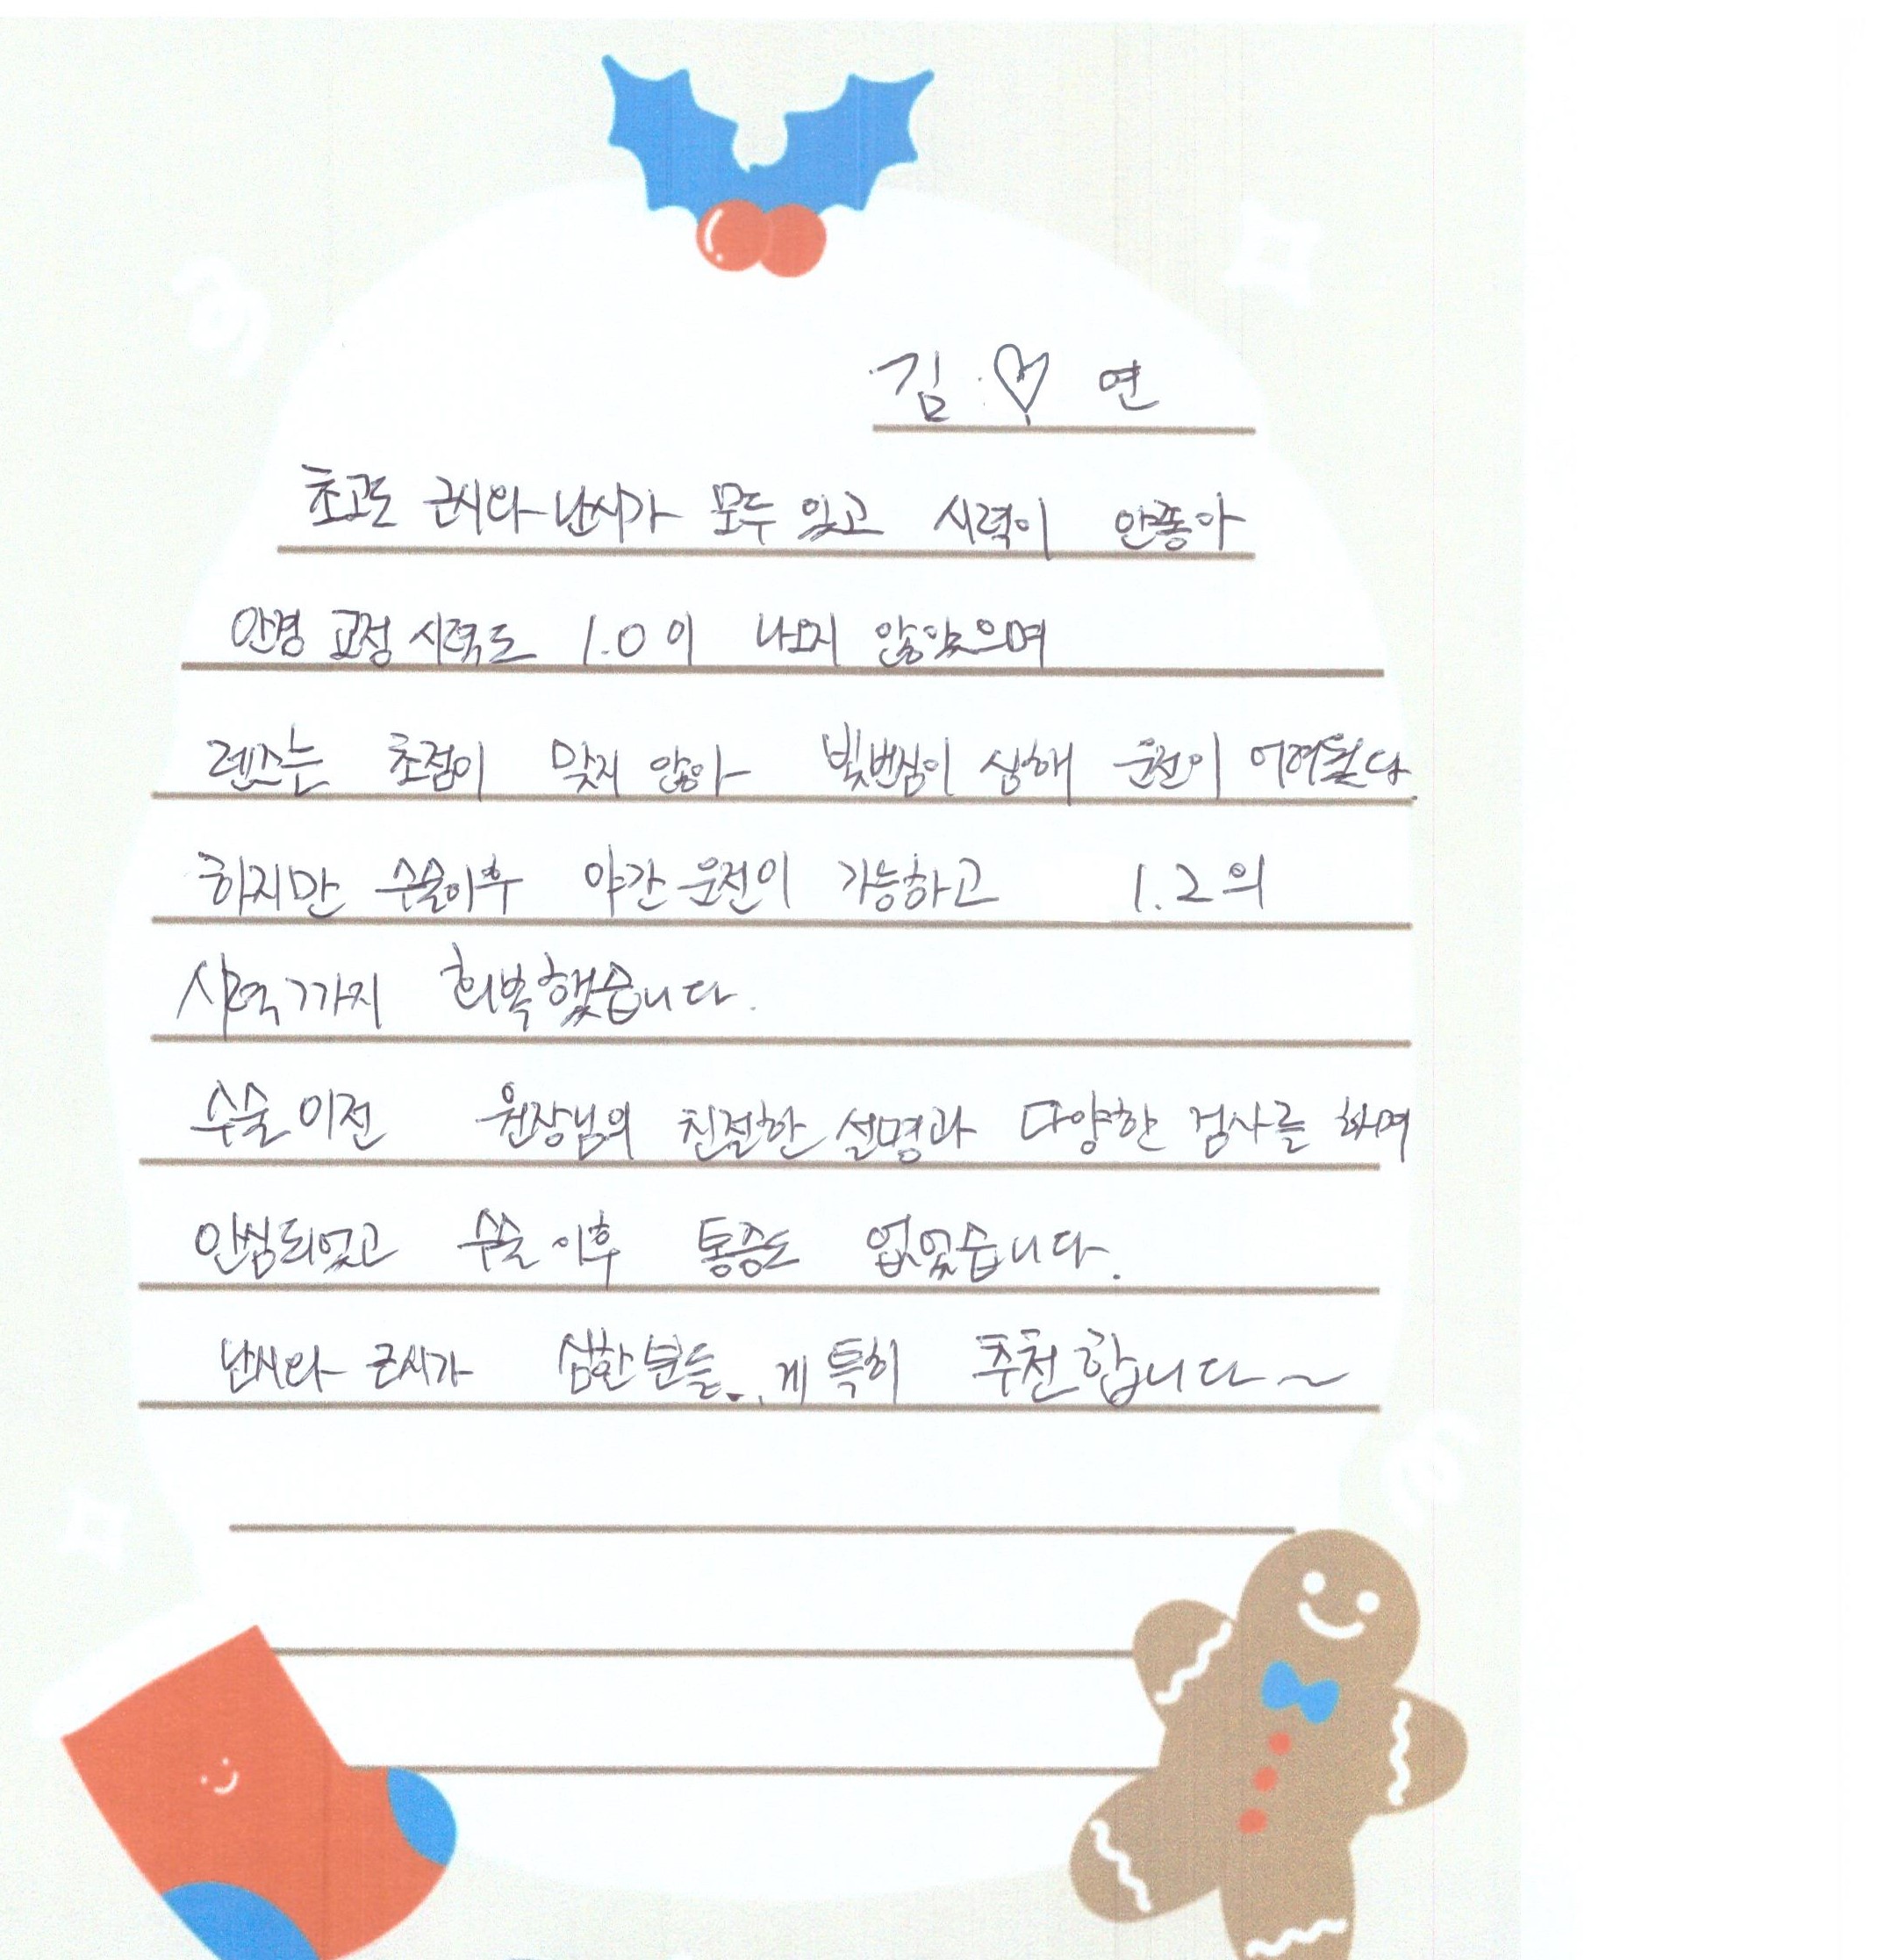 김 ♡ 연
초고도 근시와 난시가 모두 있고 시력이 안좋아
안경 교정 시력도 1.0이 나오지 않았으며
렌즈는 초점이 맞지 않아 빛번짐이 심해 운전이 어려웠다.
하지만 수술이후 야간 운전이 가능하고 1.2의
시력까지 회복했습니다.
수술 이전 원장님의 친절한 설명과 다양한 검사를 하며
안심되었고 수술 이후 통증도 없었습니다.
난시와 근시가 심한 분들게 특히 추천합니다~